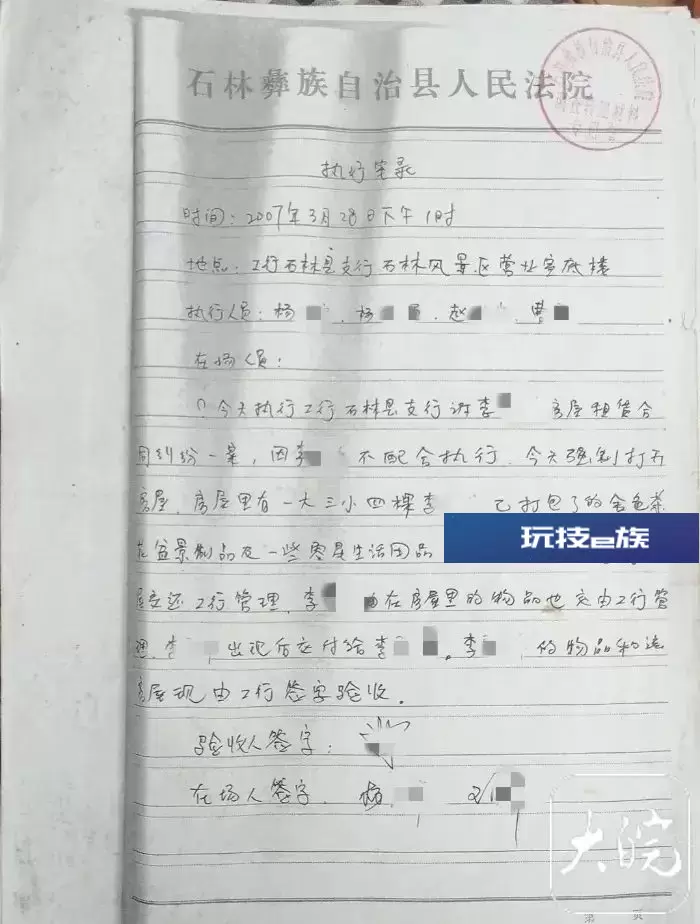 石林彝族自治县人民法院
执行笔录
时间：2007年3月28日下午1时
地点：工行石林县支行石林风景区营业室底楼
执行人员：杨 、杨 、赵 、曹
在场人员：
今天执行工行石林县支行诉李 房屋租赁合
同纠纷一案，因李 不配合执行，今天强制打开
房屋，房屋里有一大三小四棵李 已打包了的金色茶
花盆景制品及一些零星生活用品
玩技e族
屋交还工行管理，李 在房屋里的物品也交由工行管
理，李 出现后交付给李 。李 的物品和该
房屋现由工行签字验收。
验收人签字：
在场人签字： 杨
大皖
第 页